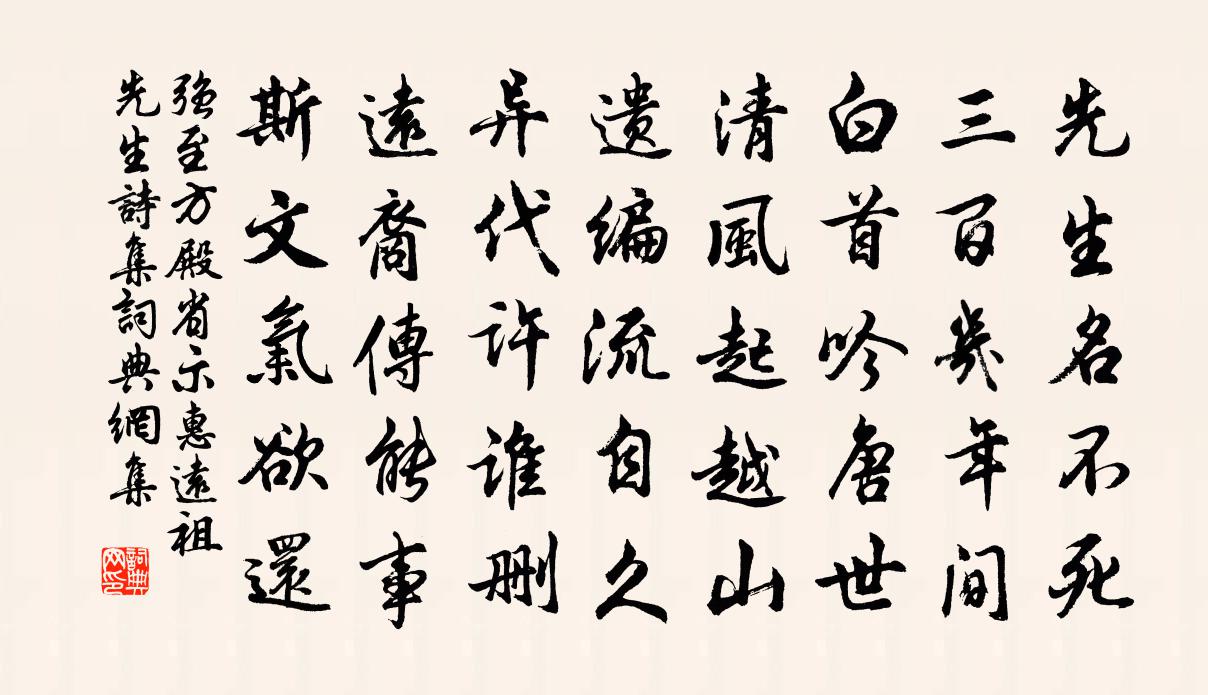 先生名不死
三百幾年間
白首吟唐世
清風起越山
遺编流自久
异代許誰删
遠裔傳能事
斯文氣欲還
強至方殿省示惠遠祖
先生詩集詞典網集
詞典網印